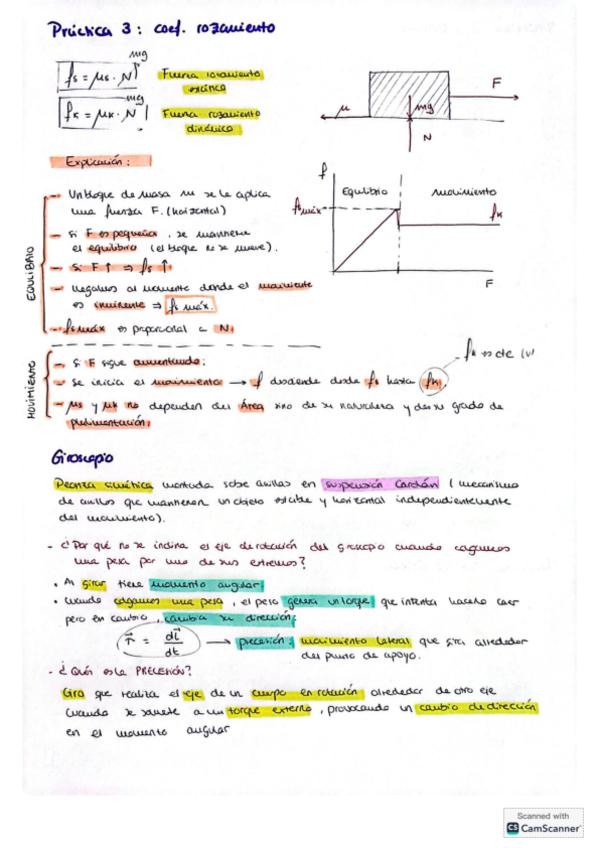 Práctica 3: coef. rozamiento
mg
fs = μs · N
Fuerza rozamiento
estática
mg
fk = μk · N
Fuerza rozamiento
dinámica
F
μ
mg
N
Explicación:
EQUILIBRIO
- Un bloque de masa m se le aplica
una fuerza F. (horizontal)
- Si F es pequeña, se mantiene
el equilibrio (el bloque no se mueve).
- Si F↑ ⇒ fs ↑
- llegamos al momento donde el movimiento
es inminente ⇒ fs máx.
- fs máx es proporcional a N.
f
Equilibrio
movimiento
fs máx
fk
F
MOVIMIENTO
- Si F sigue aumentando:
- Se inicia el movimiento → f desciende desde fs hasta fk.
- fk es cte (v)
- μs y μk no dependen del Área sino de su naturaleza y de su grado de
pulimentación.
Giroscopio
Peonza simétrica montada sobre anillos en suspensión Cardán (mecanismo
de anillos que mantienen un objeto estable y horizontal independientemente
del movimiento).
- ¿Por qué no se inclina el eje de rotación del giroscopio cuando colgamos
una pesa por uno de sus extremos?
• Al girar tiene momento angular
• Cuando colgamos una pesa, el peso genera un torque que intenta hacerlo caer
pero en cambio, cambia su dirección:
τ = dL/dt → precesión: movimiento lateral que gira alrededor
del punto de apoyo.
- ¿Qué es la PRECESIÓN?
Giro que realiza el eje de un cuerpo en rotación alrededor de otro eje
cuando se somete a un torque externo, provocando un cambio de dirección
en el momento angular
Scanned with
CS CamScanner